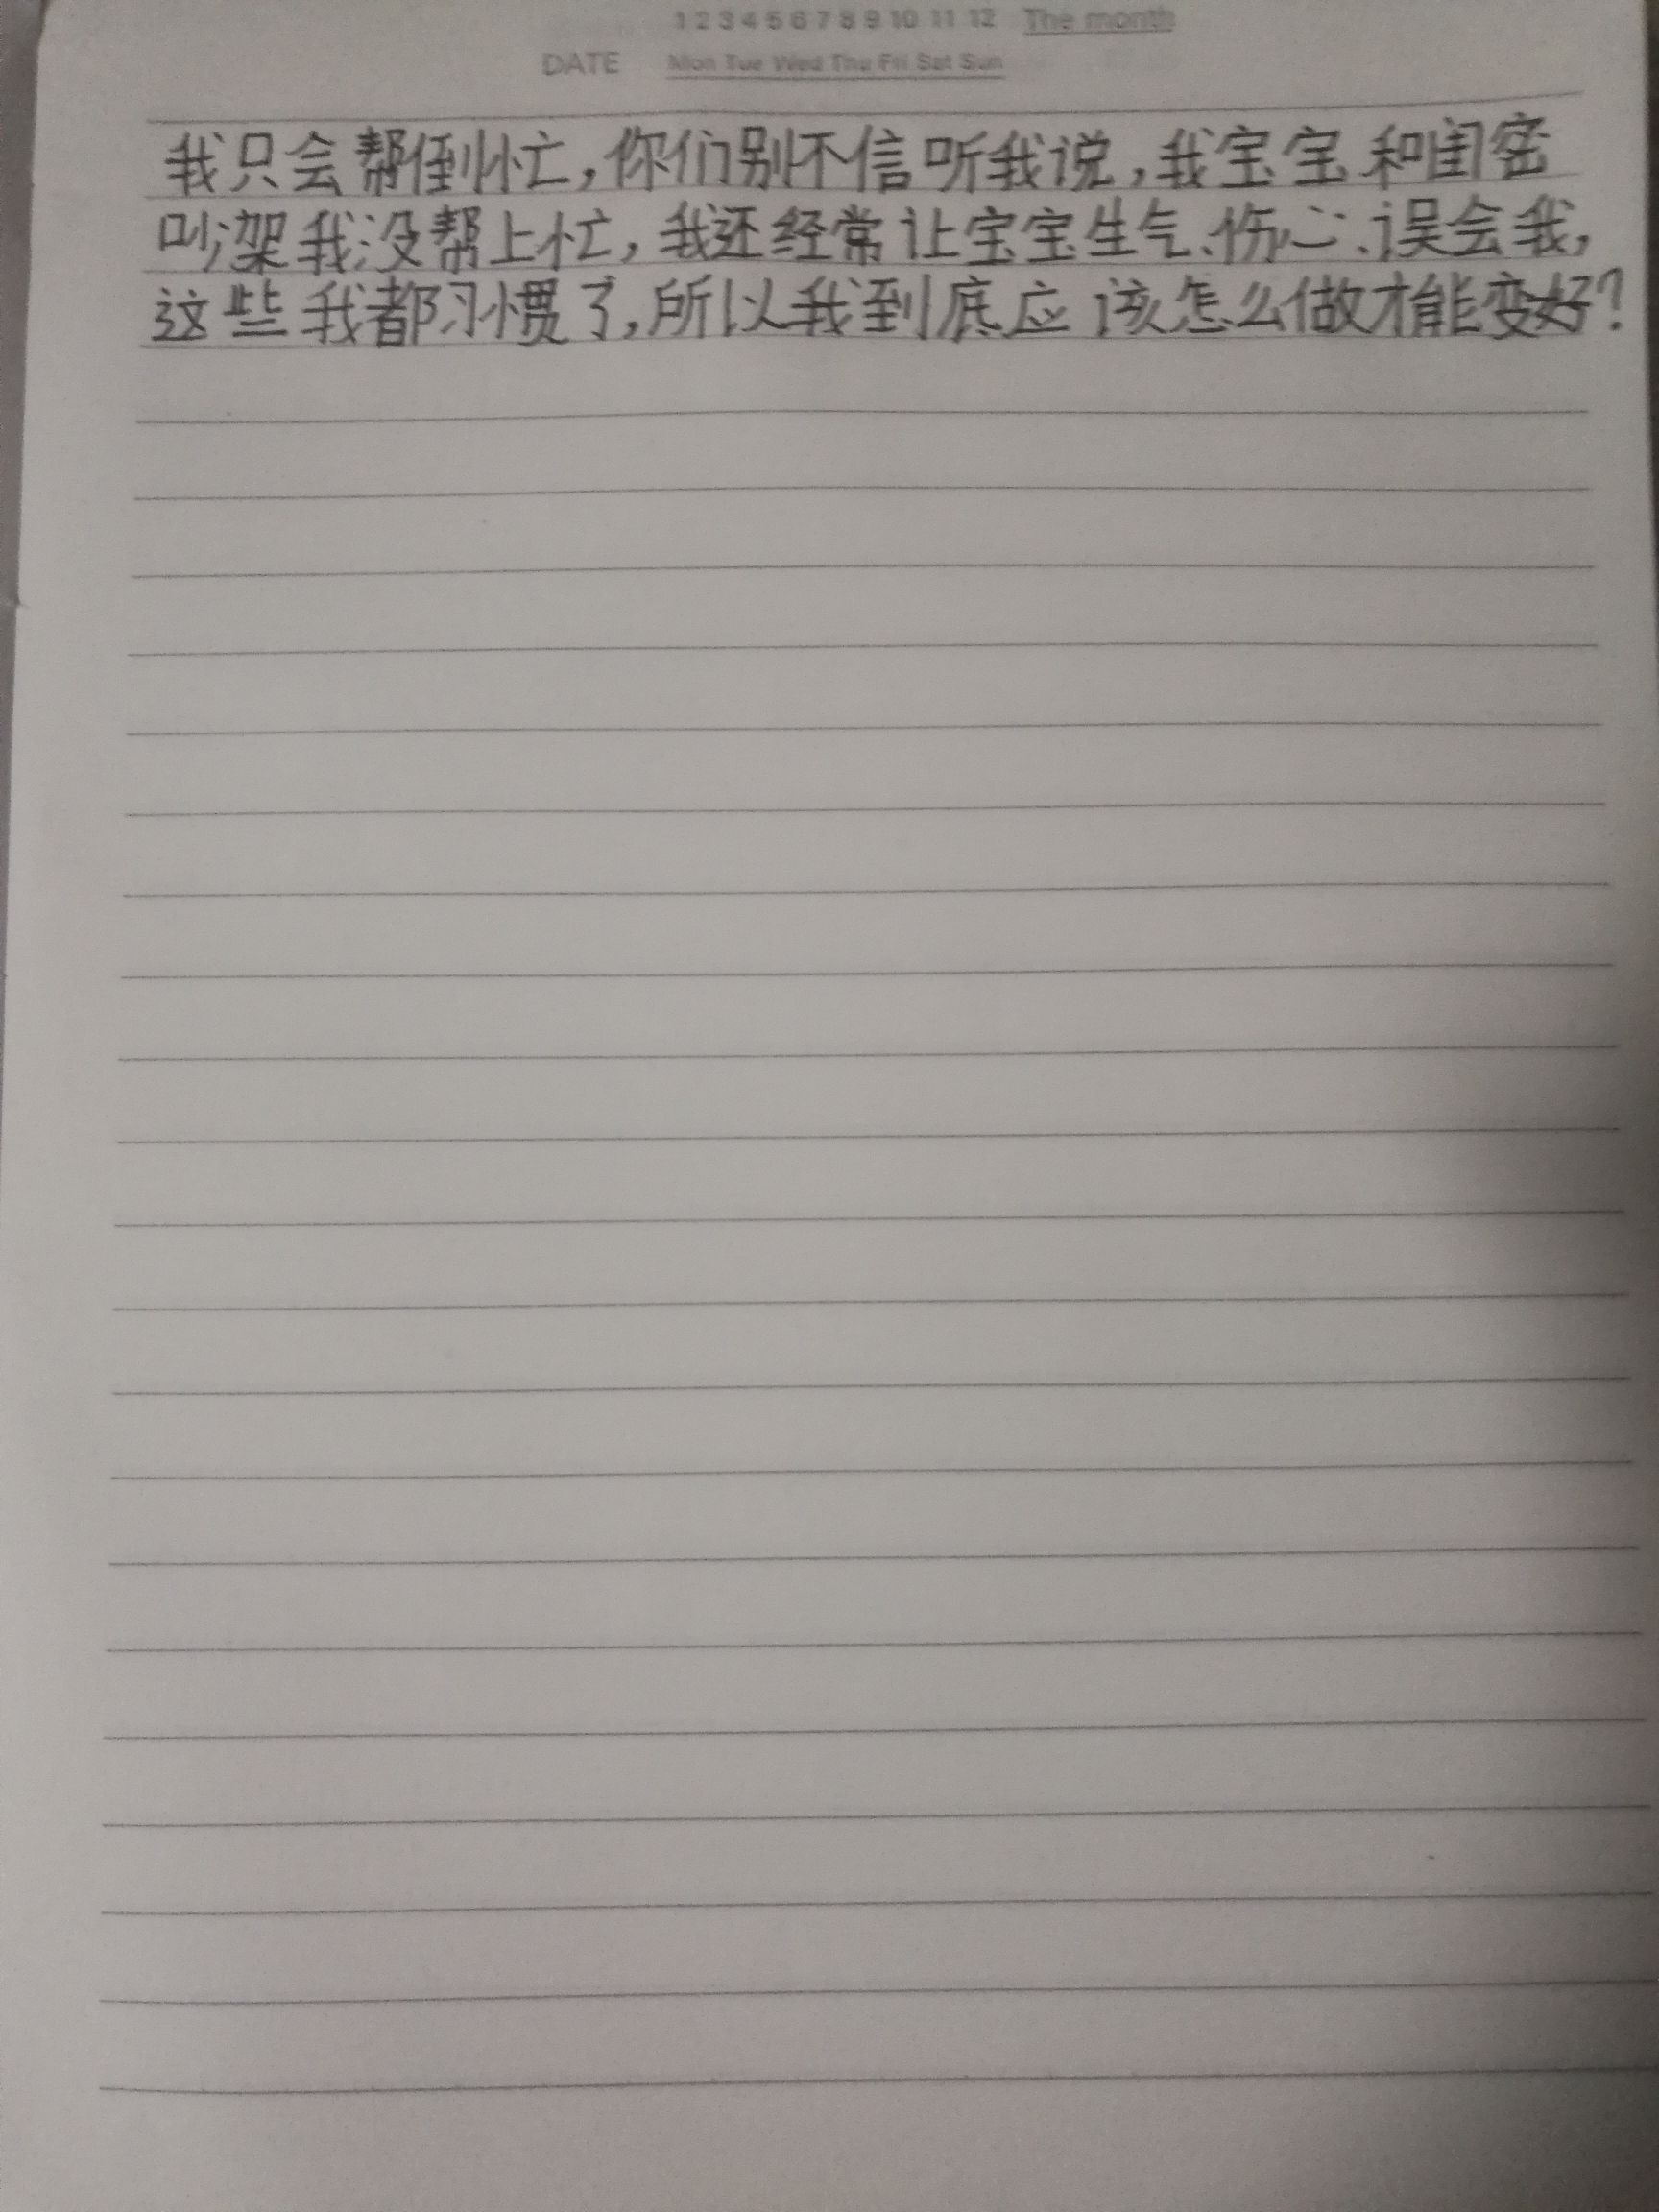 1 2 3 4 5 6 7 8 9 10 11 12 The month
DATE Mon Tue Wed Thu Fri Sat Sun
我只会帮倒忙,你们别不信听我说,我宝宝和闺密
吵架我没帮上忙,我还经常让宝宝生气、伤心、误会我,
这些我都习惯了,所以我到底应该怎么做才能变好?